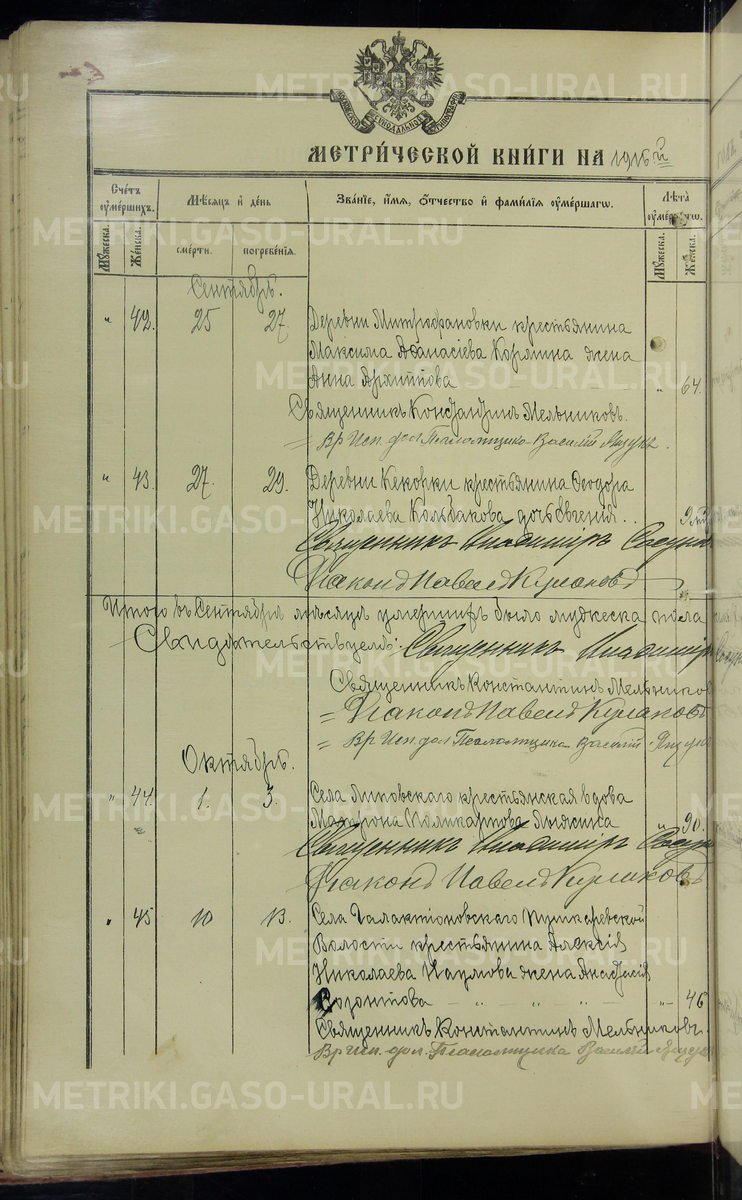 МЕТРИ́ЧЕСКОЙ КНИ́ГИ НА 1916й
Сче́тъ ᲂу҆ме́ршихъ.
Мѣ́сяцъ и҆ де́нь
Зва́нїе, и҆́мя, ѻ҆́тчество и҆ фами́лїя ᲂу҆ме́ршагѡ.
Лѣ́та ᲂу҆ме́ршагѡ.
Мꙋ́жеска.
Же́нска.
сме́рти.
погребе́нїя.
Мꙋ́жеска.
Же́нска.
Сентябрь.
" 42. 25 27. Деревни Митрофановки крестьянина
Максима Аѳанасіева Корлина жена
Анна Архиппова " 64.
Священникъ Константинъ Мельниковъ.
Вр. Исп. дол. Псаломщика Василій
" 43. 27. 29. Деревни Кекорки крестьянина Ѳеодора
Николаева Колъбакова дочь Евгенія
Священникъ Владиміръ
Діаконъ Павелъ
Итого въ Сентябрѣ мѣсяцѣ умершихъ было мужеска пола
Свидѣтельствуемъ: Священникъ Владиміръ
Священникъ Константинъ Мельников
= Діаконъ Павелъ
= Вр. Исп. дол. Псаломщика Василій
Октябрь.
" 44. 1. 3. Села Липовскаго крестьянская вдова
Матрона Поликарпова " 90.
Священникъ Владиміръ
Діаконъ Павелъ
" 45 10 13. Села Галактіоновскаго Пушкаревской
Волости крестьянина Алексія
Николаева Наумова жена Анастасія
Созонтова " " " " 46
Священникъ Константинъ Мельниковъ.
Вр. Исп. дол. Псаломщика Василій
METRIKI.GASO-URAL.RU